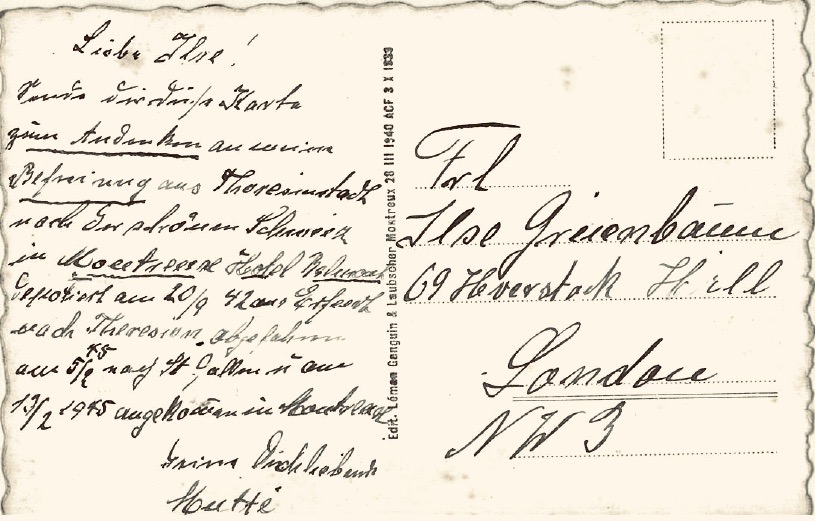 Liebe Ilse!
Sende dir diese Karte
zum Andenken an meine
Befreiung aus Theresienstadt
nach der schönen Schweiz
in Montreux Hotel Belmont
deportiert am 20/9 42 aus Erfurt
nach Theresien. abgefahren
am 5/2 45 nach St Gallen u am
13/2 1945 angekommen in Montreux
deine Dichliebende
Mutti
Edit. Löman Ganguin & Laubscher Montreux 28 III 1940 ACF 3 X 1933
Frl
Ilse Gruenbaum
69 Heverstock Hill
London
NW 3